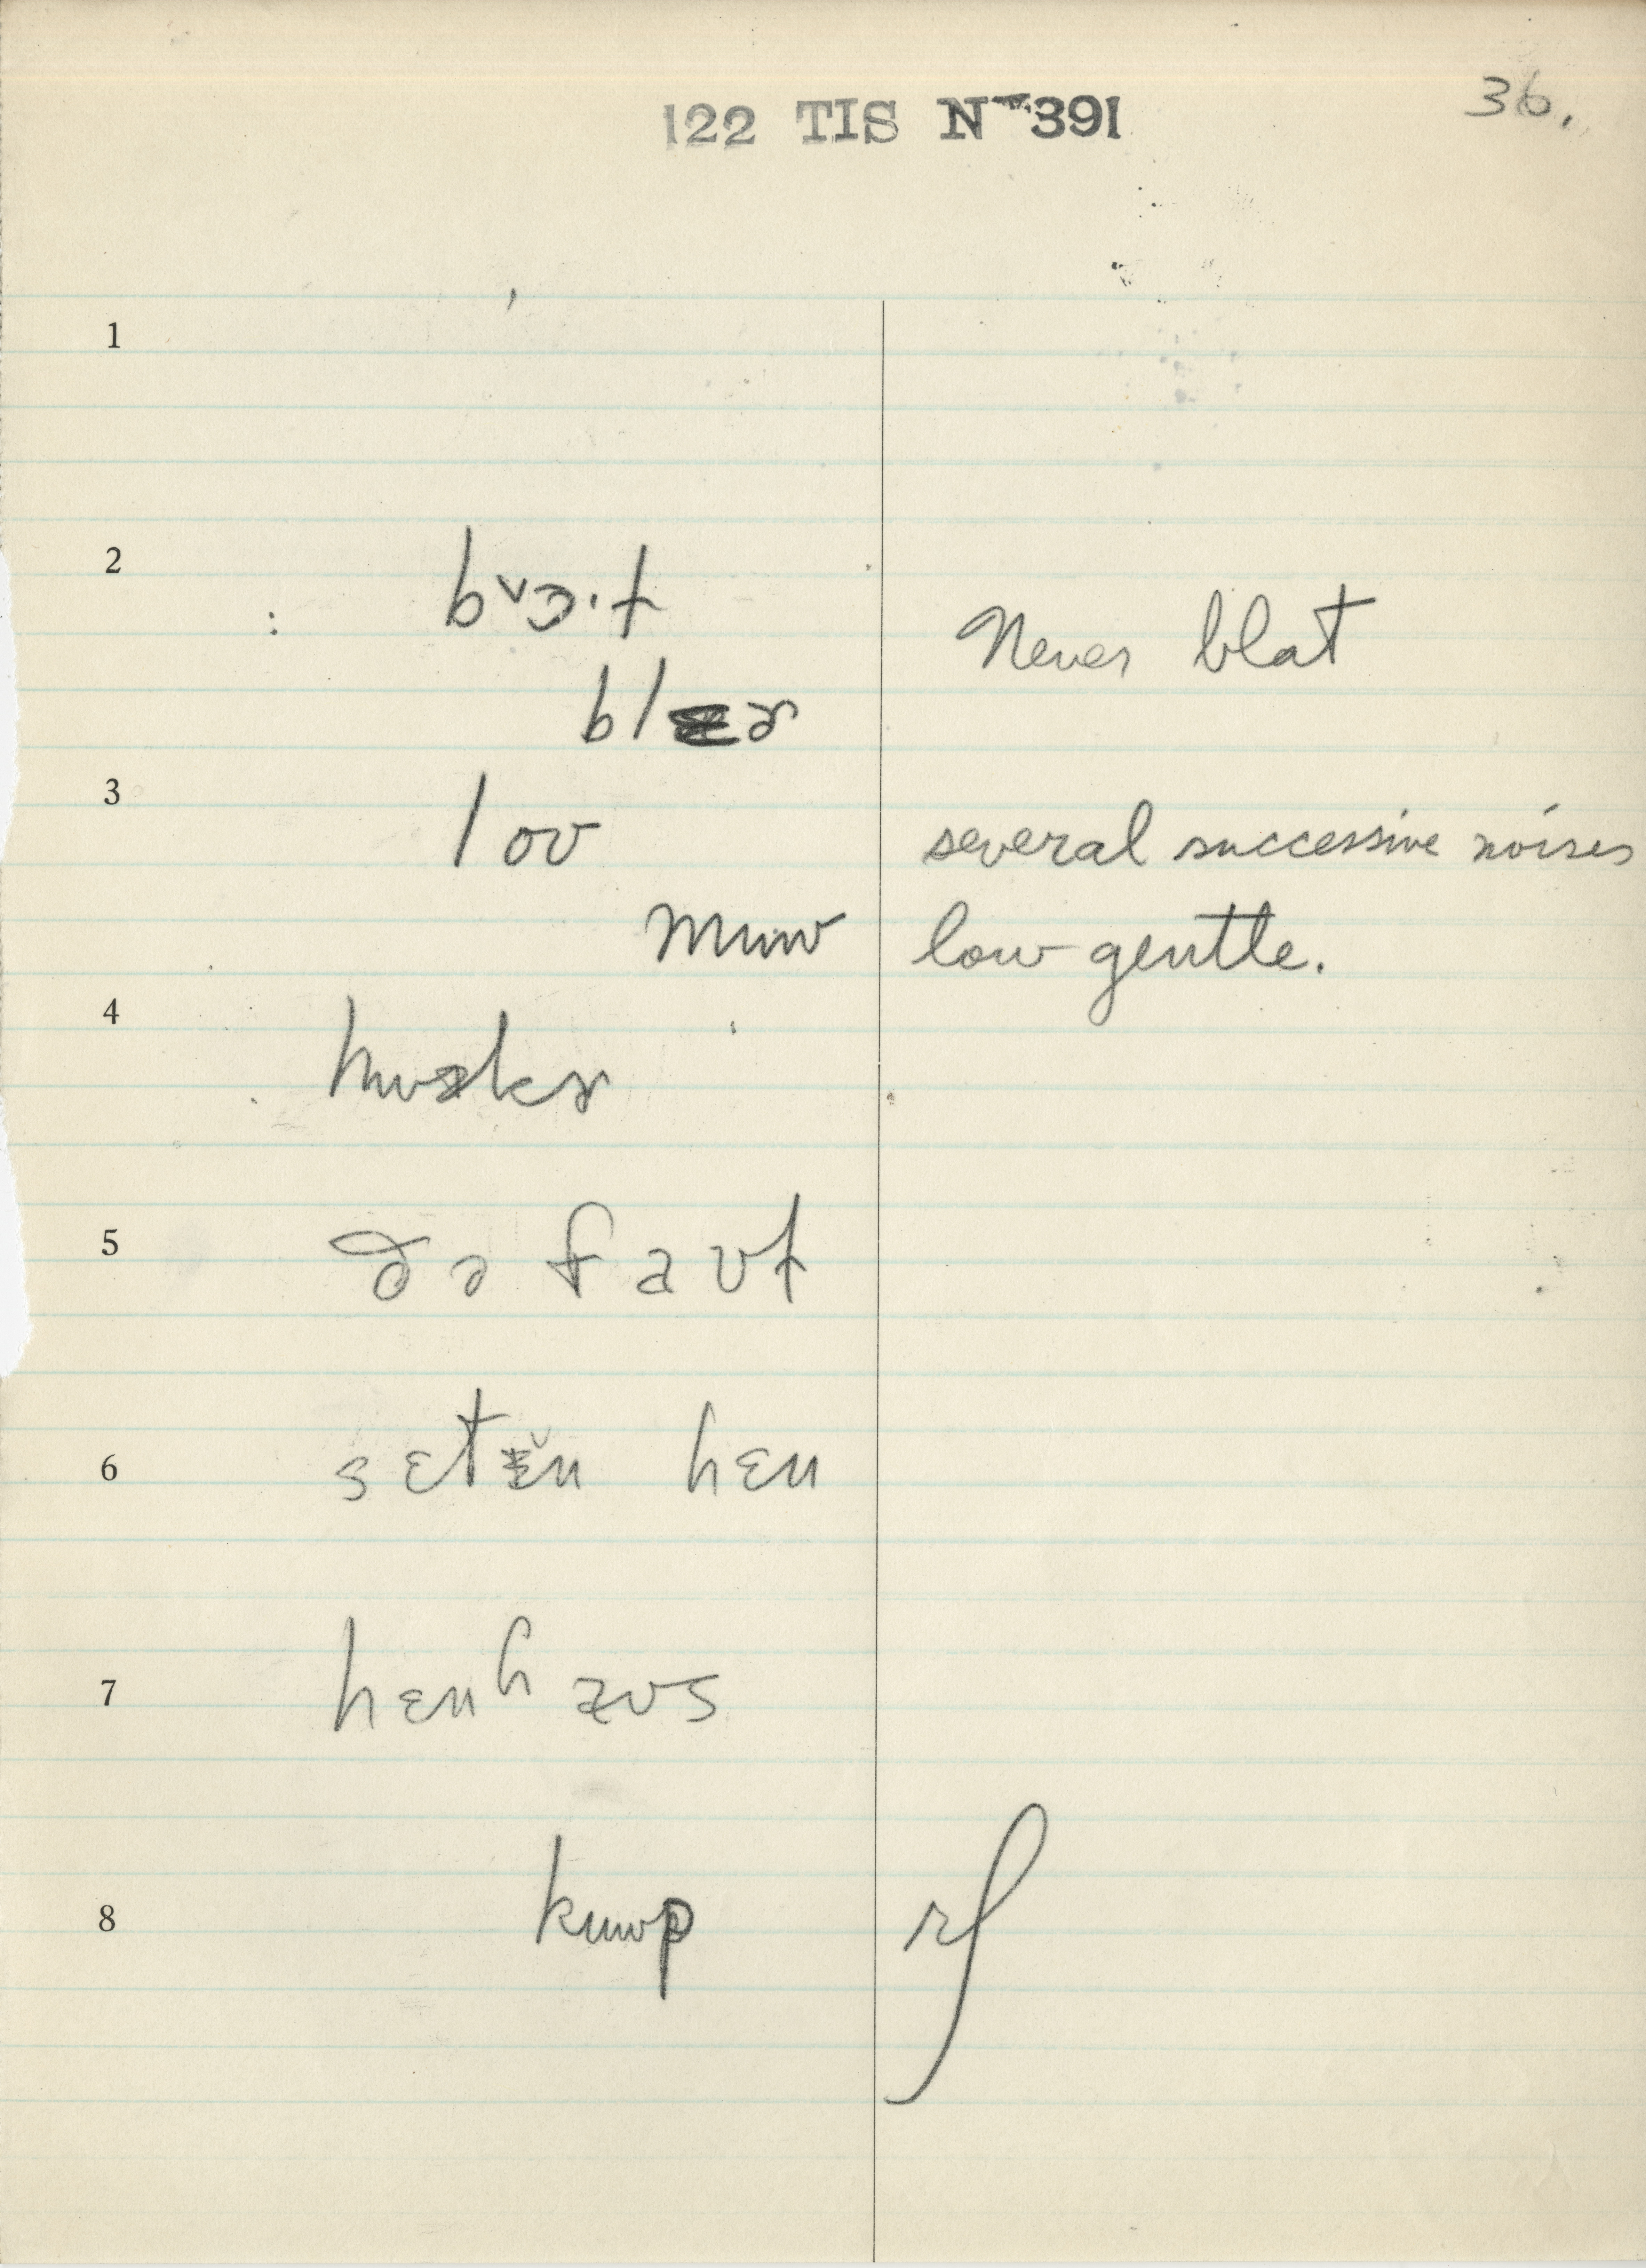 122 TIS No 391
36.
1
2
bᵛɔ·t
Never blat
blɚ
3
loʊ
several successive noises
muʊ
low gentle.
4
5
ðə faʊt
6
sɛtɪ̆n hɛn
7
hɛnhaʊs
8
kuʊp